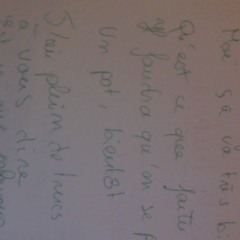 Moi sa va très bi
Qu'est ce que faite
faudra qu'on se f
Un pot, bientôt
J'ai plein de trucs
à vous dire
que